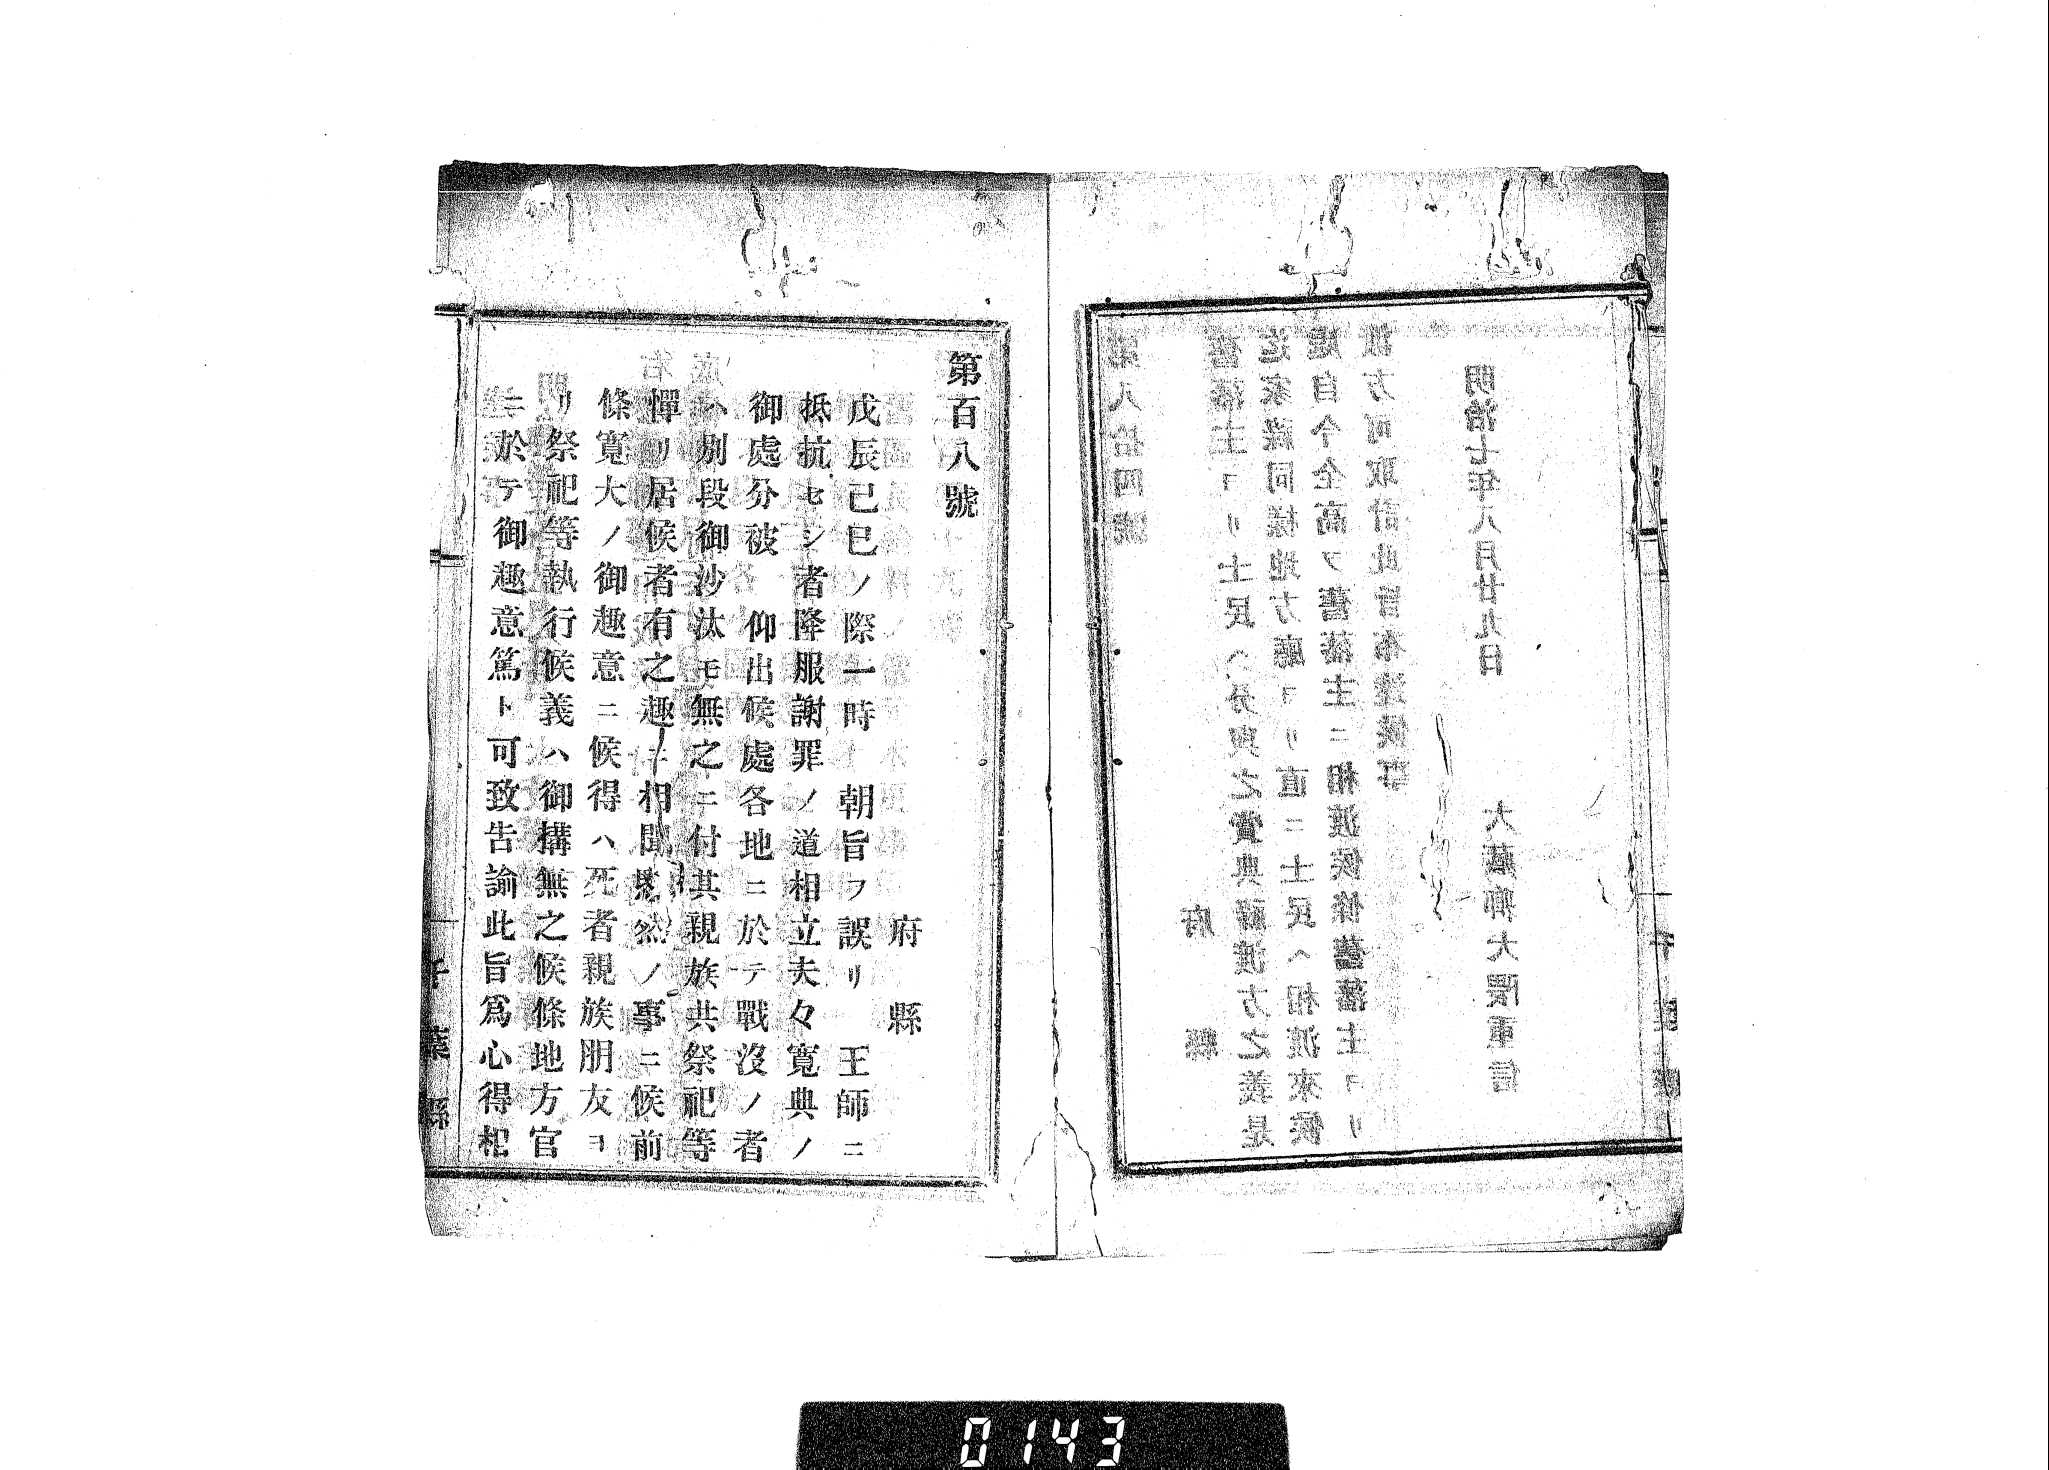 第八拾四號
府縣
舊藩主ヨリ士民ヘ分與之賞典祿渡方之義是
迄家祿同樣地方廳ヨリ直ニ士民ヘ相渡來候
處自今全高ヲ舊藩主ニ相渡候條舊藩主ヨリ
方可取計此旨布達候事
明治七年八月廿九日
大藏卿大隈重信
千葉縣
第百八號
府縣
戊辰己巳ノ際一時 朝旨ヲ誤リ 王師ニ
抵抗セシ者降服謝罪ノ道相立夫々寬典ノ
御處分被 仰出候處各地ニ於テ戰沒ノ者
ハ別段御沙汰モ無之ニ付其親族共祭祀等
憚リ居候者有之趣ニ相聞愍然ノ事ニ候前
條寬大ノ御趣意ニ候得ハ死者親族朋友ヨ
リ祭祀等執行候義ハ御構無之候條地方官
ニ於テ御趣意篤ト可致告諭此旨爲心得相
千葉縣
0143